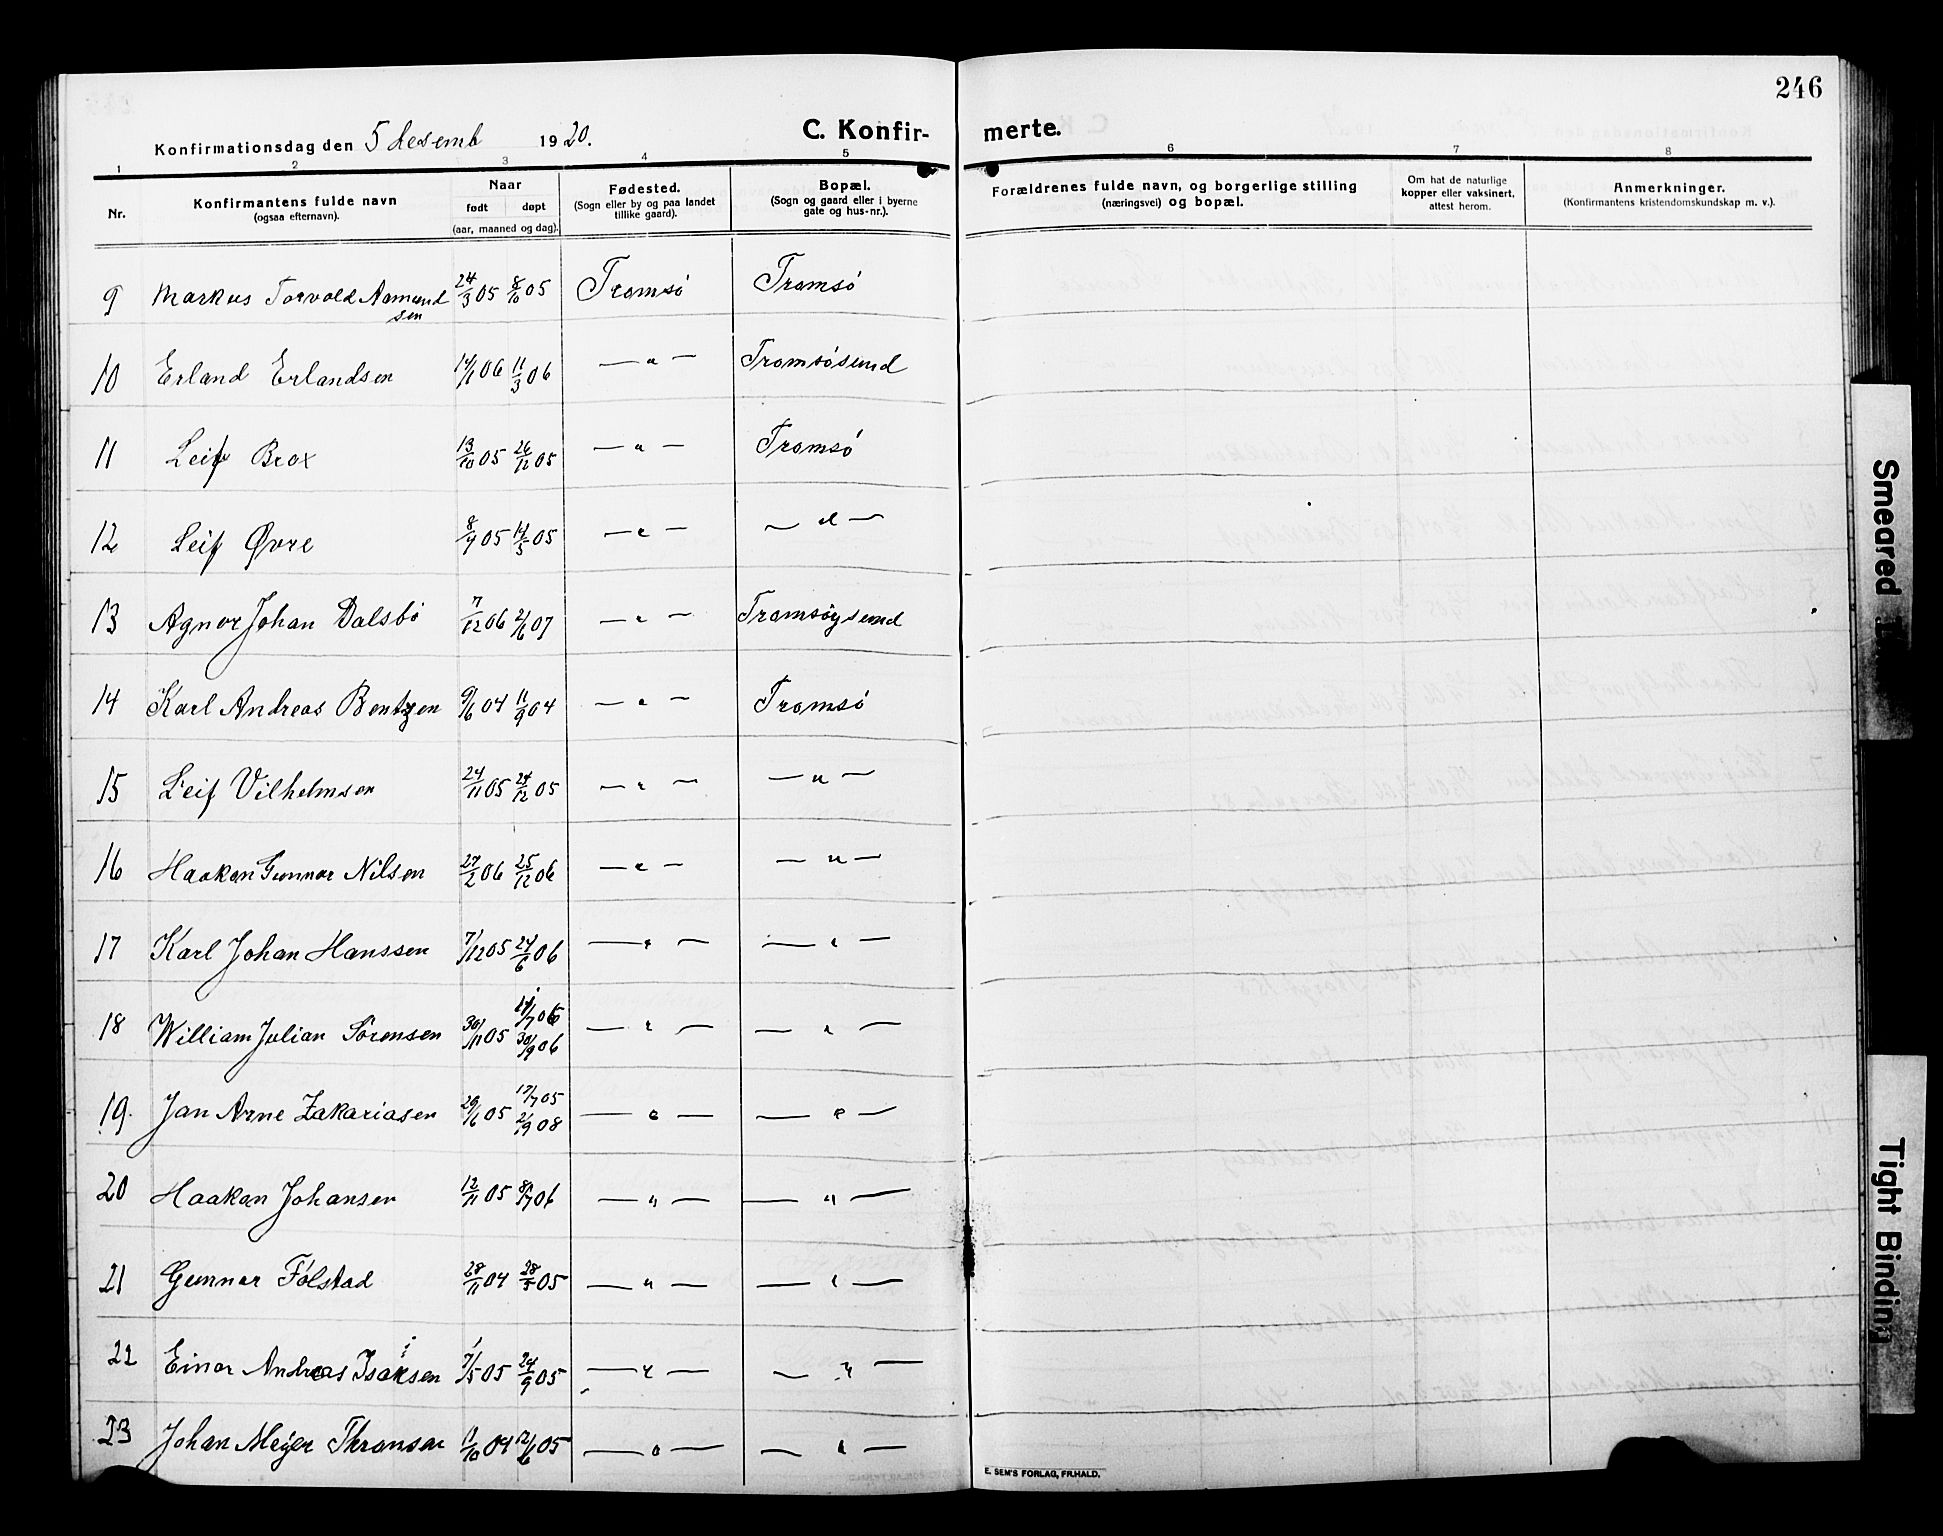 246
Konfirmationsdag den 5 desemb 1920.
C. Konfir- merte.
1 2 3 4 5 6 7 8
Nr. Konfirmantens fulde navn (ogsaa efternavn). Naar født døpt (aar, maaned og dag). Fødested. (Sogn eller by og paa landet tillike gaard). Bopæl. (Sogn og gaard eller i byerne gate og hus-nr.). Forældrenes fulde navn, og borgerlige stilling (næringsvei) og bopæl. Om hat de naturlige kopper eller vaksinert, attest herom. Anmerkninger. (Konfirmantens kristendomskundskap m. v.).
9 Markus Torvald Aamund 24/3 05 8/10 05 Tromsö Tromsö
sen
10 Erland Erlandsen 14/1 06 11/3 06 — " — Tromsösund
11 Leif Brox 13/10 05 26/12 05 — " — Tromsö
12 Leif Øvre 8/4 05 14/5 05 — " — — " —
13 Agnar Johan Dalsbö 7/12 06 2/6 07 — " — Tromsöysund
14 Karl Andreas Bentzen 9/6 04 11/9 04 — " — Tromsö
15 Leif Vilhelmsen 24/11 05 24/12 05 — " — — " —
16 Haakon Gunnar Nilsen 27/2 06 25/12 06 — " — — " —
17 Karl Johan Hanssen 7/12 05 24/6 06 — " — — " —
18 William Julian Sörensen 30/11 05 30/9 06 — " — — " —
19. Jan Arne Zakariasen 29/6 05 17/7 05 2/9 08 — " — — " —
20 Haakon Johansen 12/11 05 8/7 06 — " — — " —
21 Gunnar Fölstad 28/11 04 28/5 05 — " — — " —
22 Einar Andreas Isaksen 7/5 05 24/9 05 — " — — " —
23 Johan Meyer Thronsen 11/10 04 12/6 05 — " — — " —
E. SEM'S FORLAG, FR.HALD.
Smeared
Tight Binding